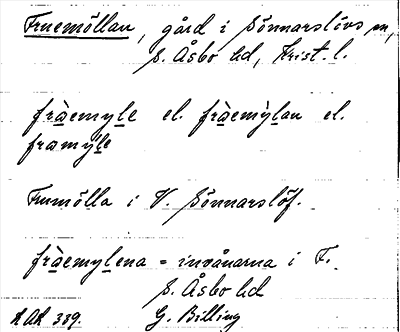 Fruemöllan, gård i Sönnarslövs sn,
S. Åsbo hd, Krist. l.
fràemyle el. fràemỳlan el.
framyle
Frumölla i V. Sönnarslöf.
fràemylena = invånarna i F.
S. Åsbo hd
G. Billing